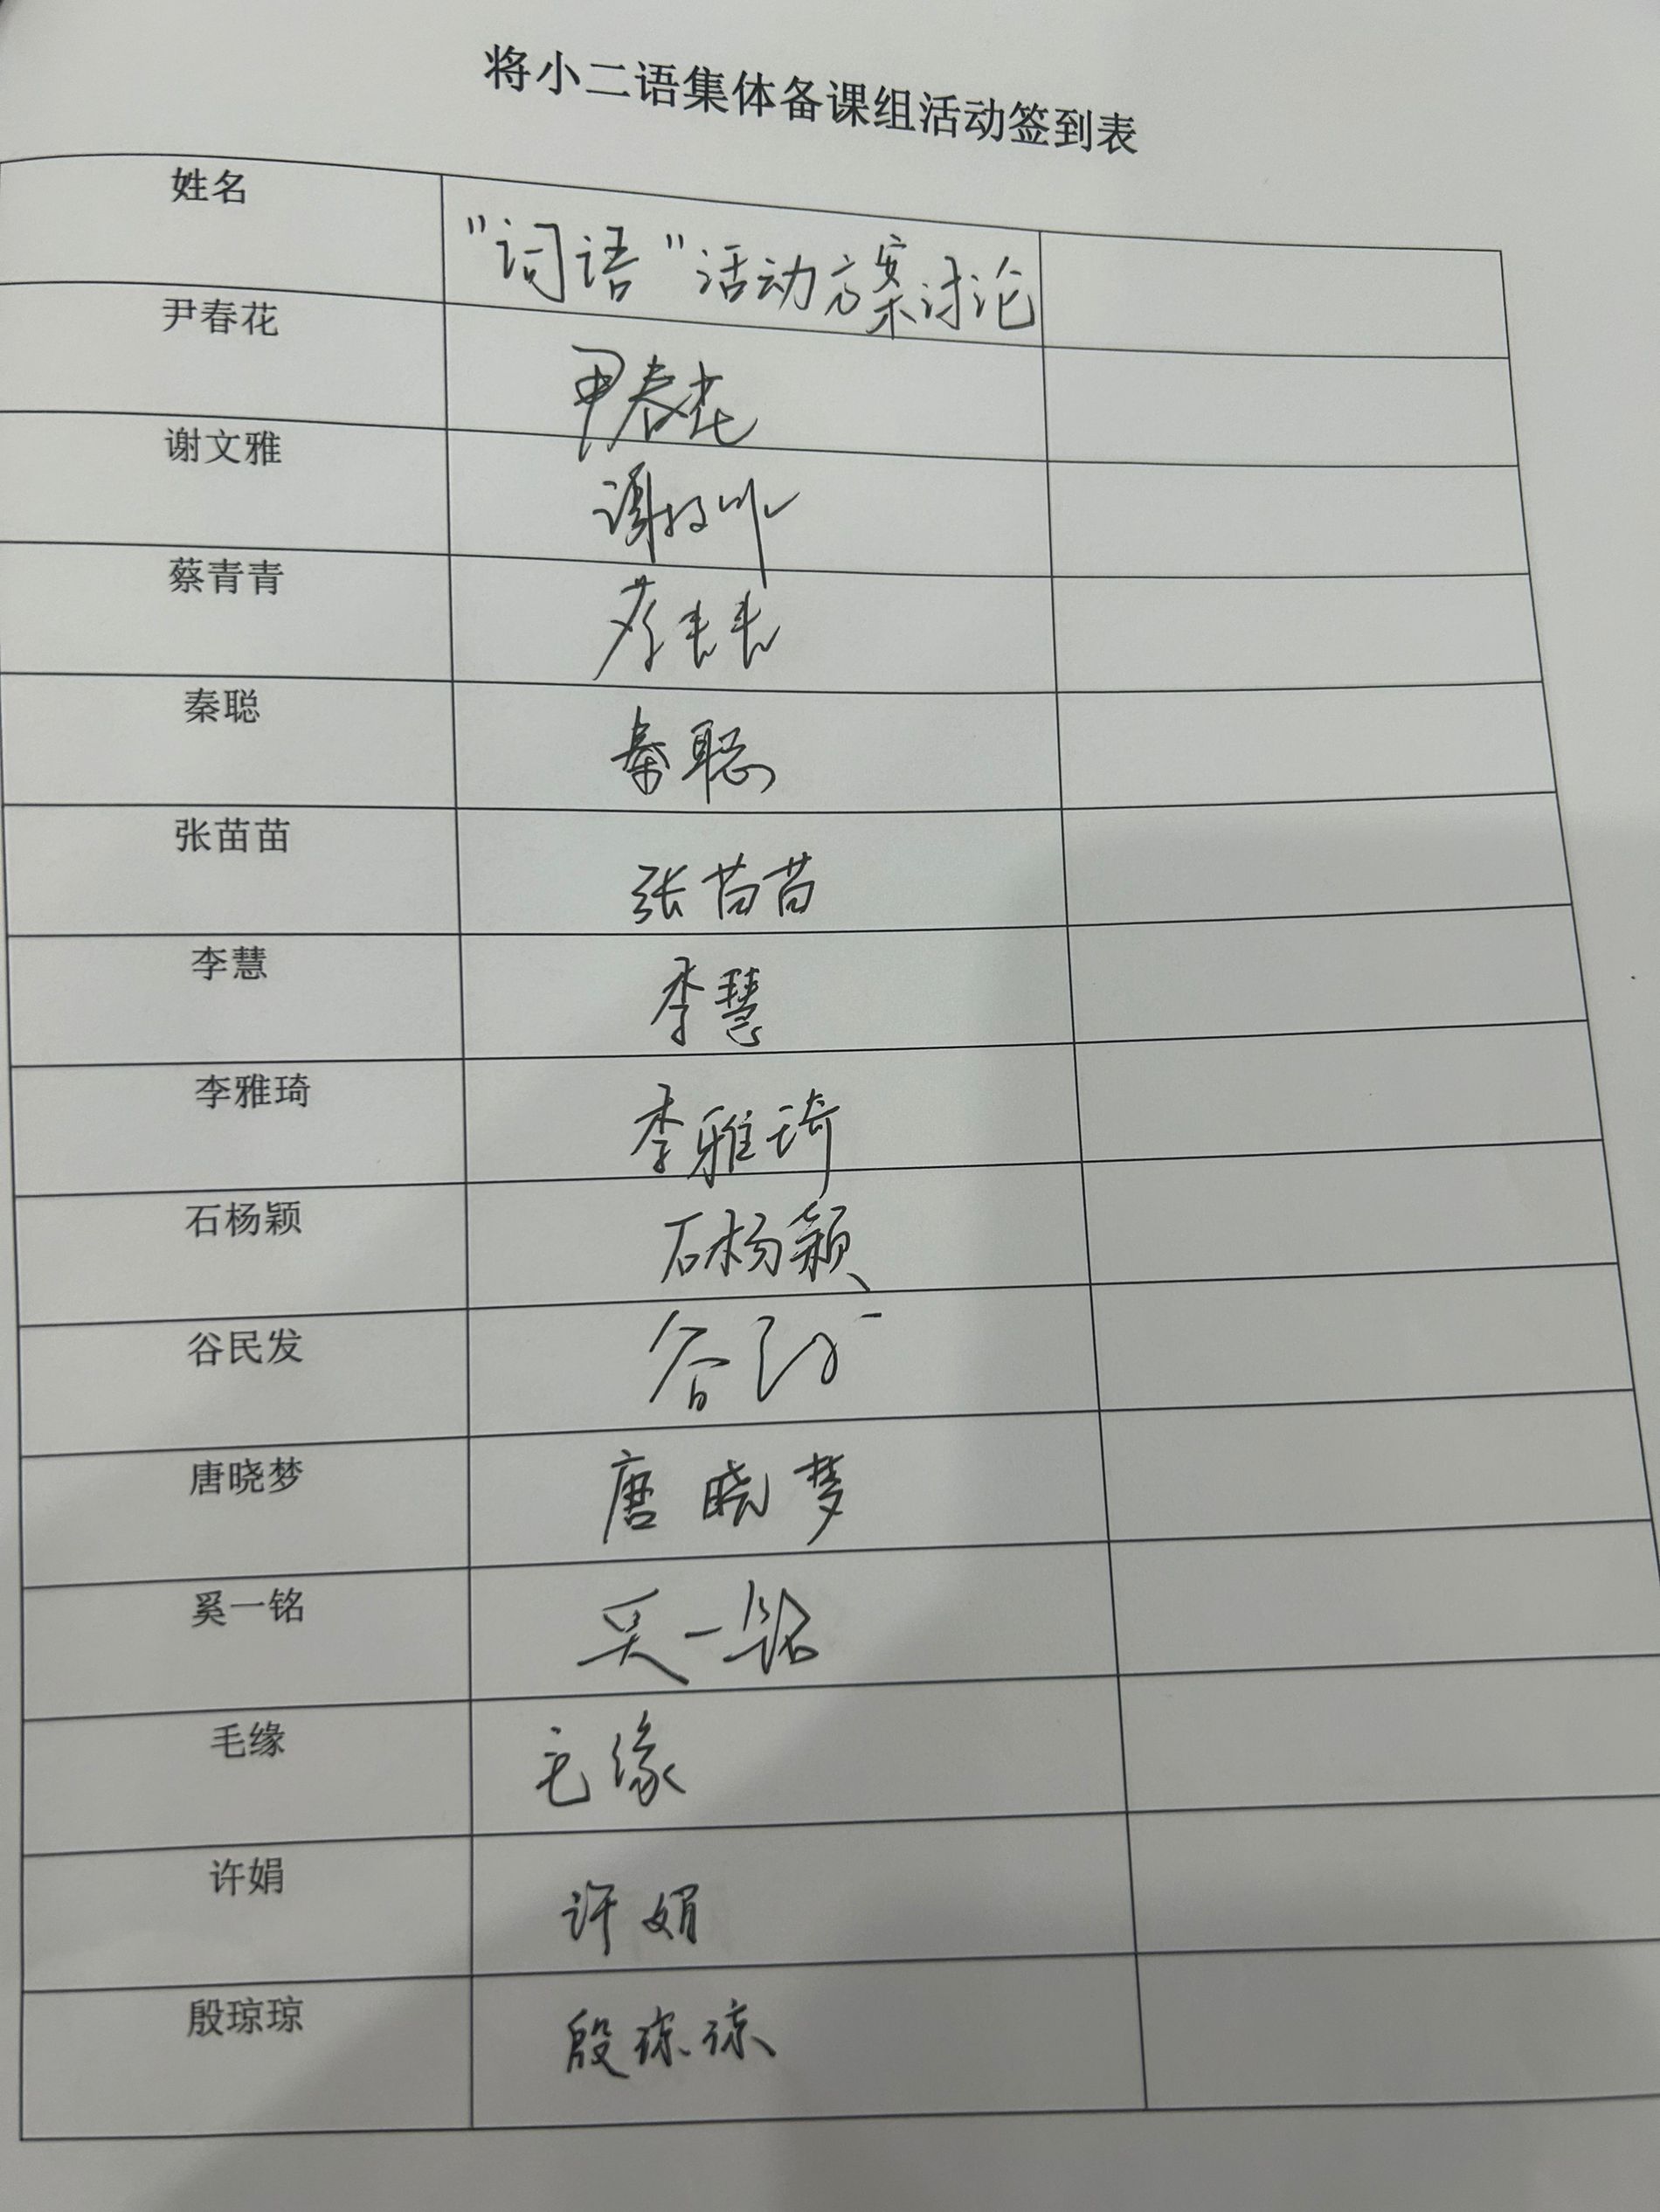 将小二语集体备课组活动签到表
姓名 "词语"活动方案讨论
尹春花 尹春花
谢文雅 谢文雅
蔡青青 蔡青青
秦聪 秦聪
张苗苗 张苗苗
李慧 李慧
李雅琦 李雅琦
石杨颖 石杨颖
谷民发 谷民发
唐晓梦 唐晓梦
奚一铭 奚一铭
毛缘 毛缘
许娟 许娟
殷琼琼 殷琼琼